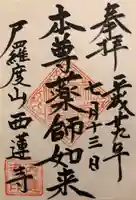 奉拝
平成廿九年
七月十三日
本尊薬師如来
尸羅度山西蓮寺